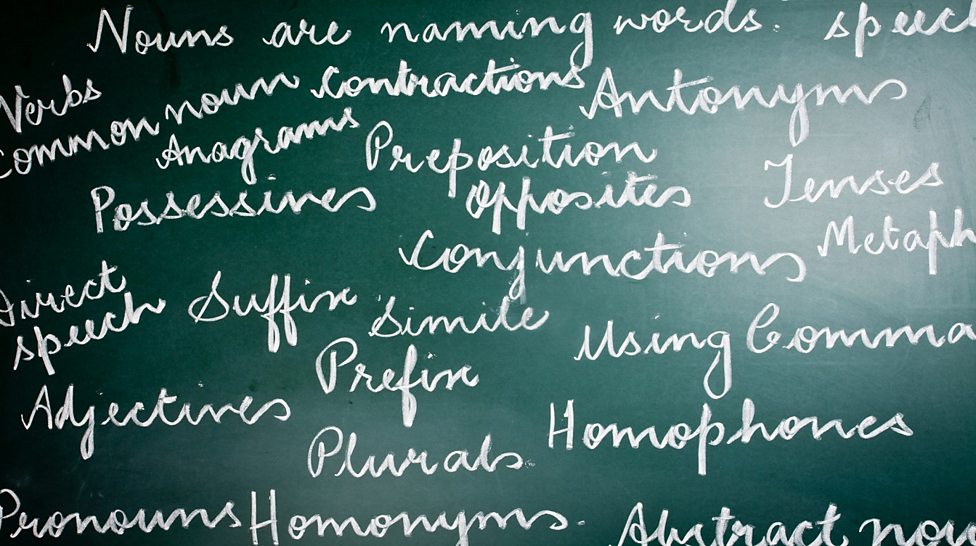 Nouns are naming words. speec
Verbs
Common noun contractions Antonyms
Anagrams Preposition
Possessives opposites Tenses
Conjunctions Metaph
Direct
speech Suffix Simile Using Comma
Prefix
Adjectives Homophones
Plurals
Pronouns Homonyms. Abstract nou